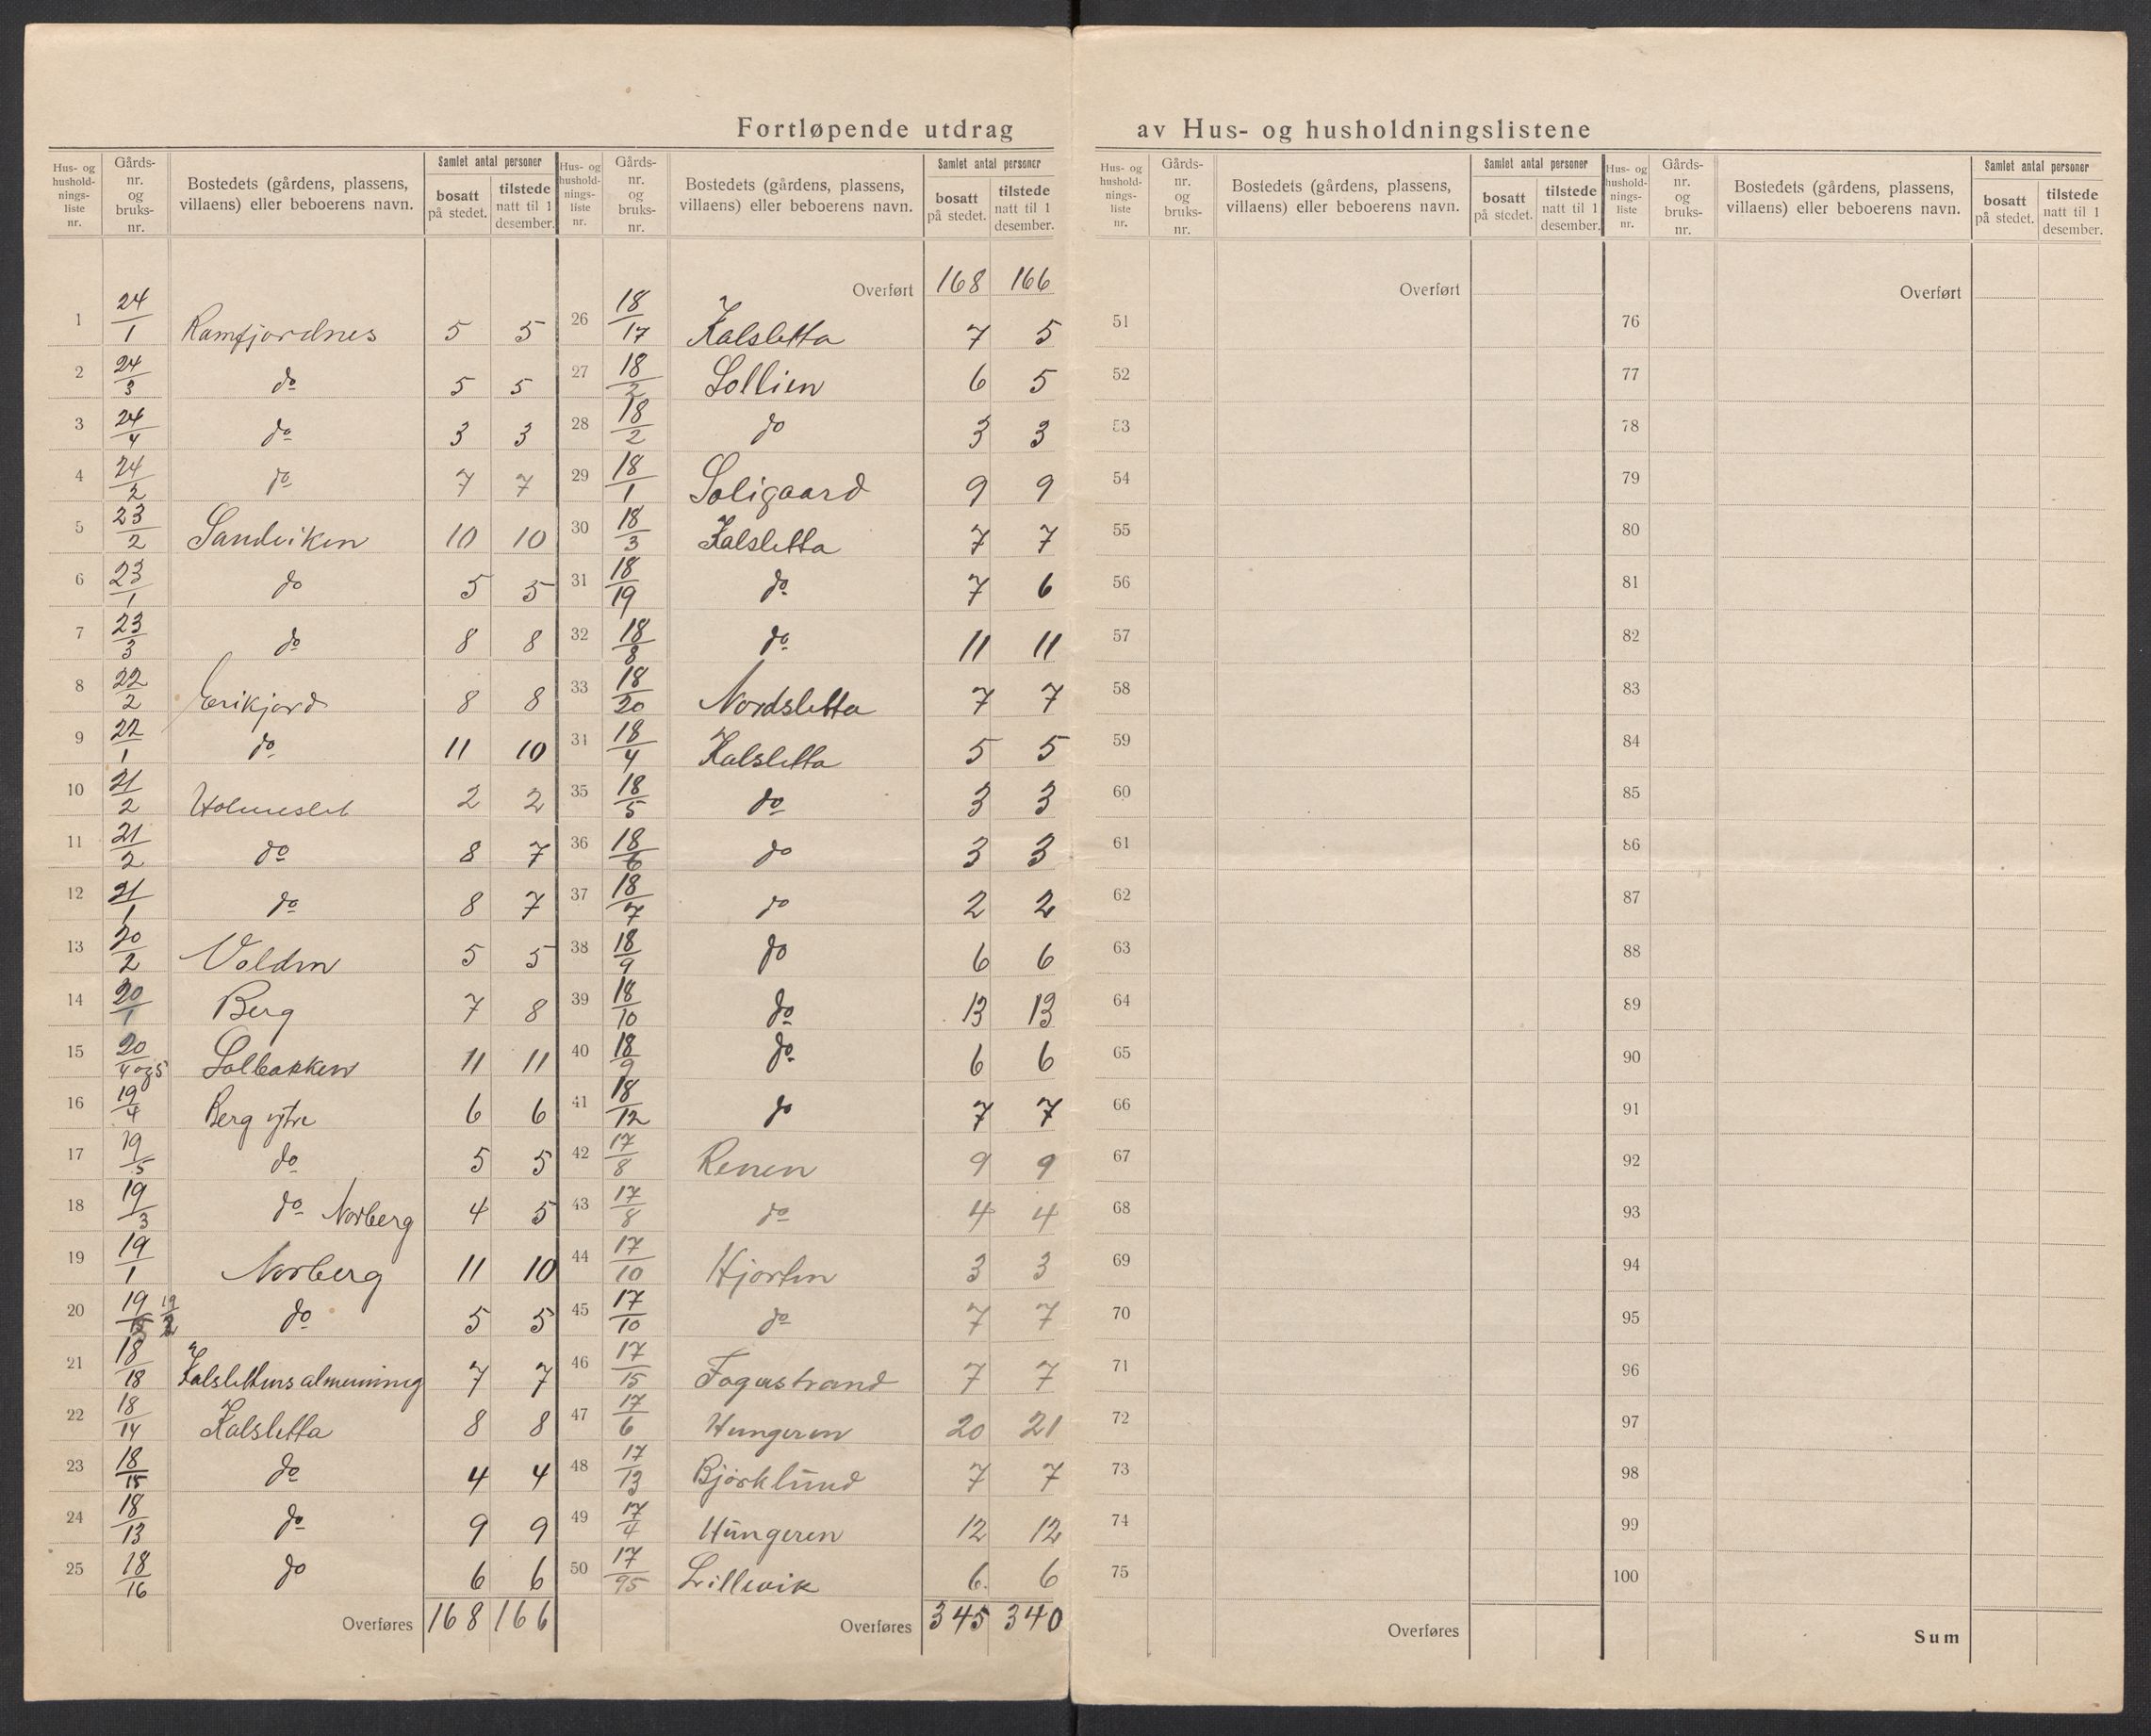 Fortløpende utdrag av Hus- og husholdningslistene
Hus- og hushold- nings- liste nr. | Gårds- nr. og bruks- nr. | Bostedets (gårdens, plassens, villaens) eller beboerens navn. | Samlet antal personer | bosatt på stedet. | tilstede natt til 1 desember.
1 24/1 Ramfjordnes 5 5
2 24/3 do 5 5
3 24/4 do 3 3
4 24/2 do 7 7
5 23/2 Sandviken 10 10
6 23/1 do 5 5
7 23/3 do 8 8
8 22/2 Erikjord 8 8
9 22/1 do 11 10
10 21/2 Holmeslet 2 2
11 21/2 do 8 7
12 21/1 do 8 7
13 20/2 Volden 5 5
14 20/1 Berg 7 8
15 20/4 og 5 Solbakken 11 11
16 19/4 Berg ytre 6 6
17 19/5 do 5 5
18 19/3 do Norberg 4 5
19 19/1 Norberg 11 10
20 19/15 19/2 do 5 5
21 18/18 Kalslettens almenning 7 7
22 18/14 Kalsletta 8 8
23 18/15 do 4 4
24 18/13 do 9 9
25 18/16 do 6 6
Overføres 168 166
Hus- og hushold- nings- liste nr. | Gårds- nr. og bruks- nr. | Bostedets (gårdens, plassens, villaens) eller beboerens navn. | Samlet antal personer | bosatt på stedet. | tilstede natt til 1 desember.
Overført 168 166
26 18/17 Kalsletta 7 5
27 18/2 Sollien 6 5
28 18/2 do 3 3
29 18/1 Soligaard 9 9
30 18/3 Kalsletta 7 7
31 18/19 do 7 6
32 18/8 do 11 11
33 18/20 Nordsletta 7 7
31 18/4 Kalsletta 5 5
35 18/5 do 3 3
36 18/6 do 3 3
37 18/7 do 2 2
38 18/9 do 6 6
39 18/10 do 13 13
40 18/9 do 6 6
41 18/12 do 7 7
42 17/8 Renen 9 9
43 17/8 do 4 4
44 17/10 Hjorten 3 3
45 17/10 do 7 7
46 17/15 Fagerstrand 7 7
47 17/6 Hungeren 20 21
48 17/13 Bjørklund 7 7
49 17/4 Hungeren 12 12
50 17/95 Lillevik 6 6
Overføres 345 340
Hus- og hushold- nings- liste nr. | Gårds- nr. og bruks- nr. | Bostedets (gårdens, plassens, villaens) eller beboerens navn. | Samlet antal personer | bosatt på stedet. | tilstede natt til 1 desember.
Overført
51
52
53
54
55
56
57
58
59
60
61
62
63
64
65
66
67
68
69
70
71
72
73
74
75
Overføres
Hus- og hushold- nings- liste nr. | Gårds- nr. og bruks- nr. | Bostedets (gårdens, plassens, villaens) eller beboerens navn. | Samlet antal personer | bosatt på stedet. | tilstede natt til 1 desember.
Overført
76
77
78
79
80
81
82
83
84
85
86
87
88
89
90
91
92
93
94
95
96
97
98
99
100
Sum